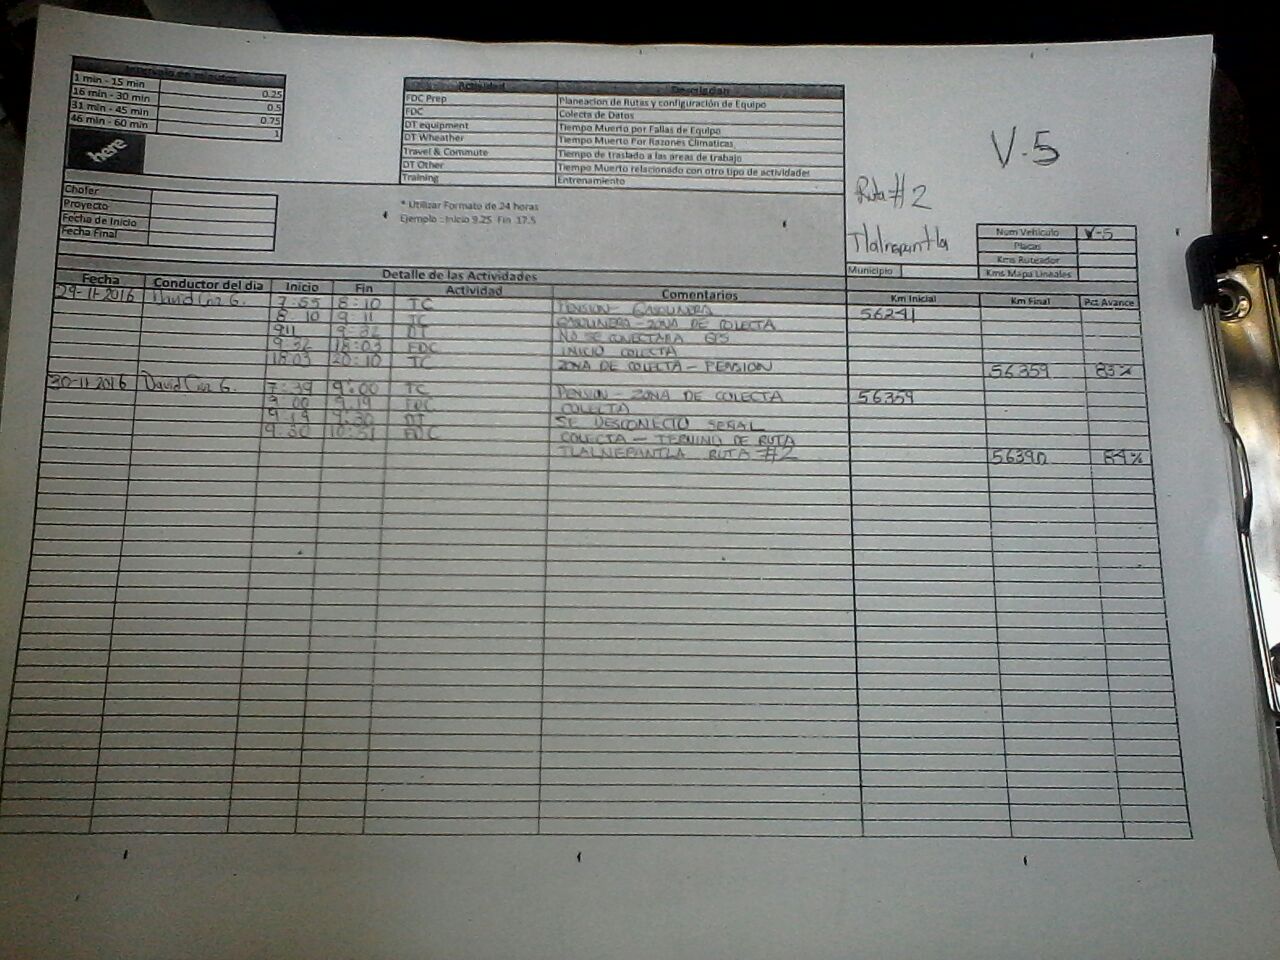 Intervalo en minutos
1 min - 15 min 0.25
16 min - 30 min 0.5
31 min - 45 min 0.75
46 min - 60 min 1
here
Actividad Descripcion
FDC Prep Planeacion de Rutas y configuración de Equipo
FDC Colecta de Datos
DT equipment Tiempo Muerto por Fallas de Equipo
DT Wheather Tiempo Muerto Por Razones Climaticas
Travel & Commute Tiempo de traslado a las areas de trabajo
DT Other Tiempo Muerto relacionado con otro tipo de actividades
Training Entrenamiento
V-5
Ruta #2
Tlalnepantla
Chofer
Proyecto
Fecha de Inicio
Fecha Final
* Utilizar Formato de 24 horas
Ejemplo : Inicio 9.25 Fin 17.5
Num Vehiculo V-5
Placas
Kms Ruteador
Municipio Kms Mapa Lineales
Detalle de las Actividades
Fecha Conductor del dia Inicio Fin Actividad Comentarios Km Inicial Km Final Pct Avance
29-11-2016 David Cruz G. 7:55 8:10 TC PENSION - GASOLINERA 56241
8:10 9:11 TC GASOLINERA - ZONA DE COLECTA
9:11 9:32 DT NO SE CONECTABA
9:32 18:03 FDC INICIO COLECTA
18:03 20:10 TC ZONA DE COLECTA - PENSION 56359 83%
30-11-2016 David Cruz G. 7:39 9:00 TC PENSION - ZONA DE COLECTA 56359
9:00 9:19 FDC COLECTA
9:19 9:30 DT SE DESCONECTO SEÑAL
9:30 10:51 FDC COLECTA - TERMINO DE RUTA
TLALNEPANTLA RUTA #2 56390 84%